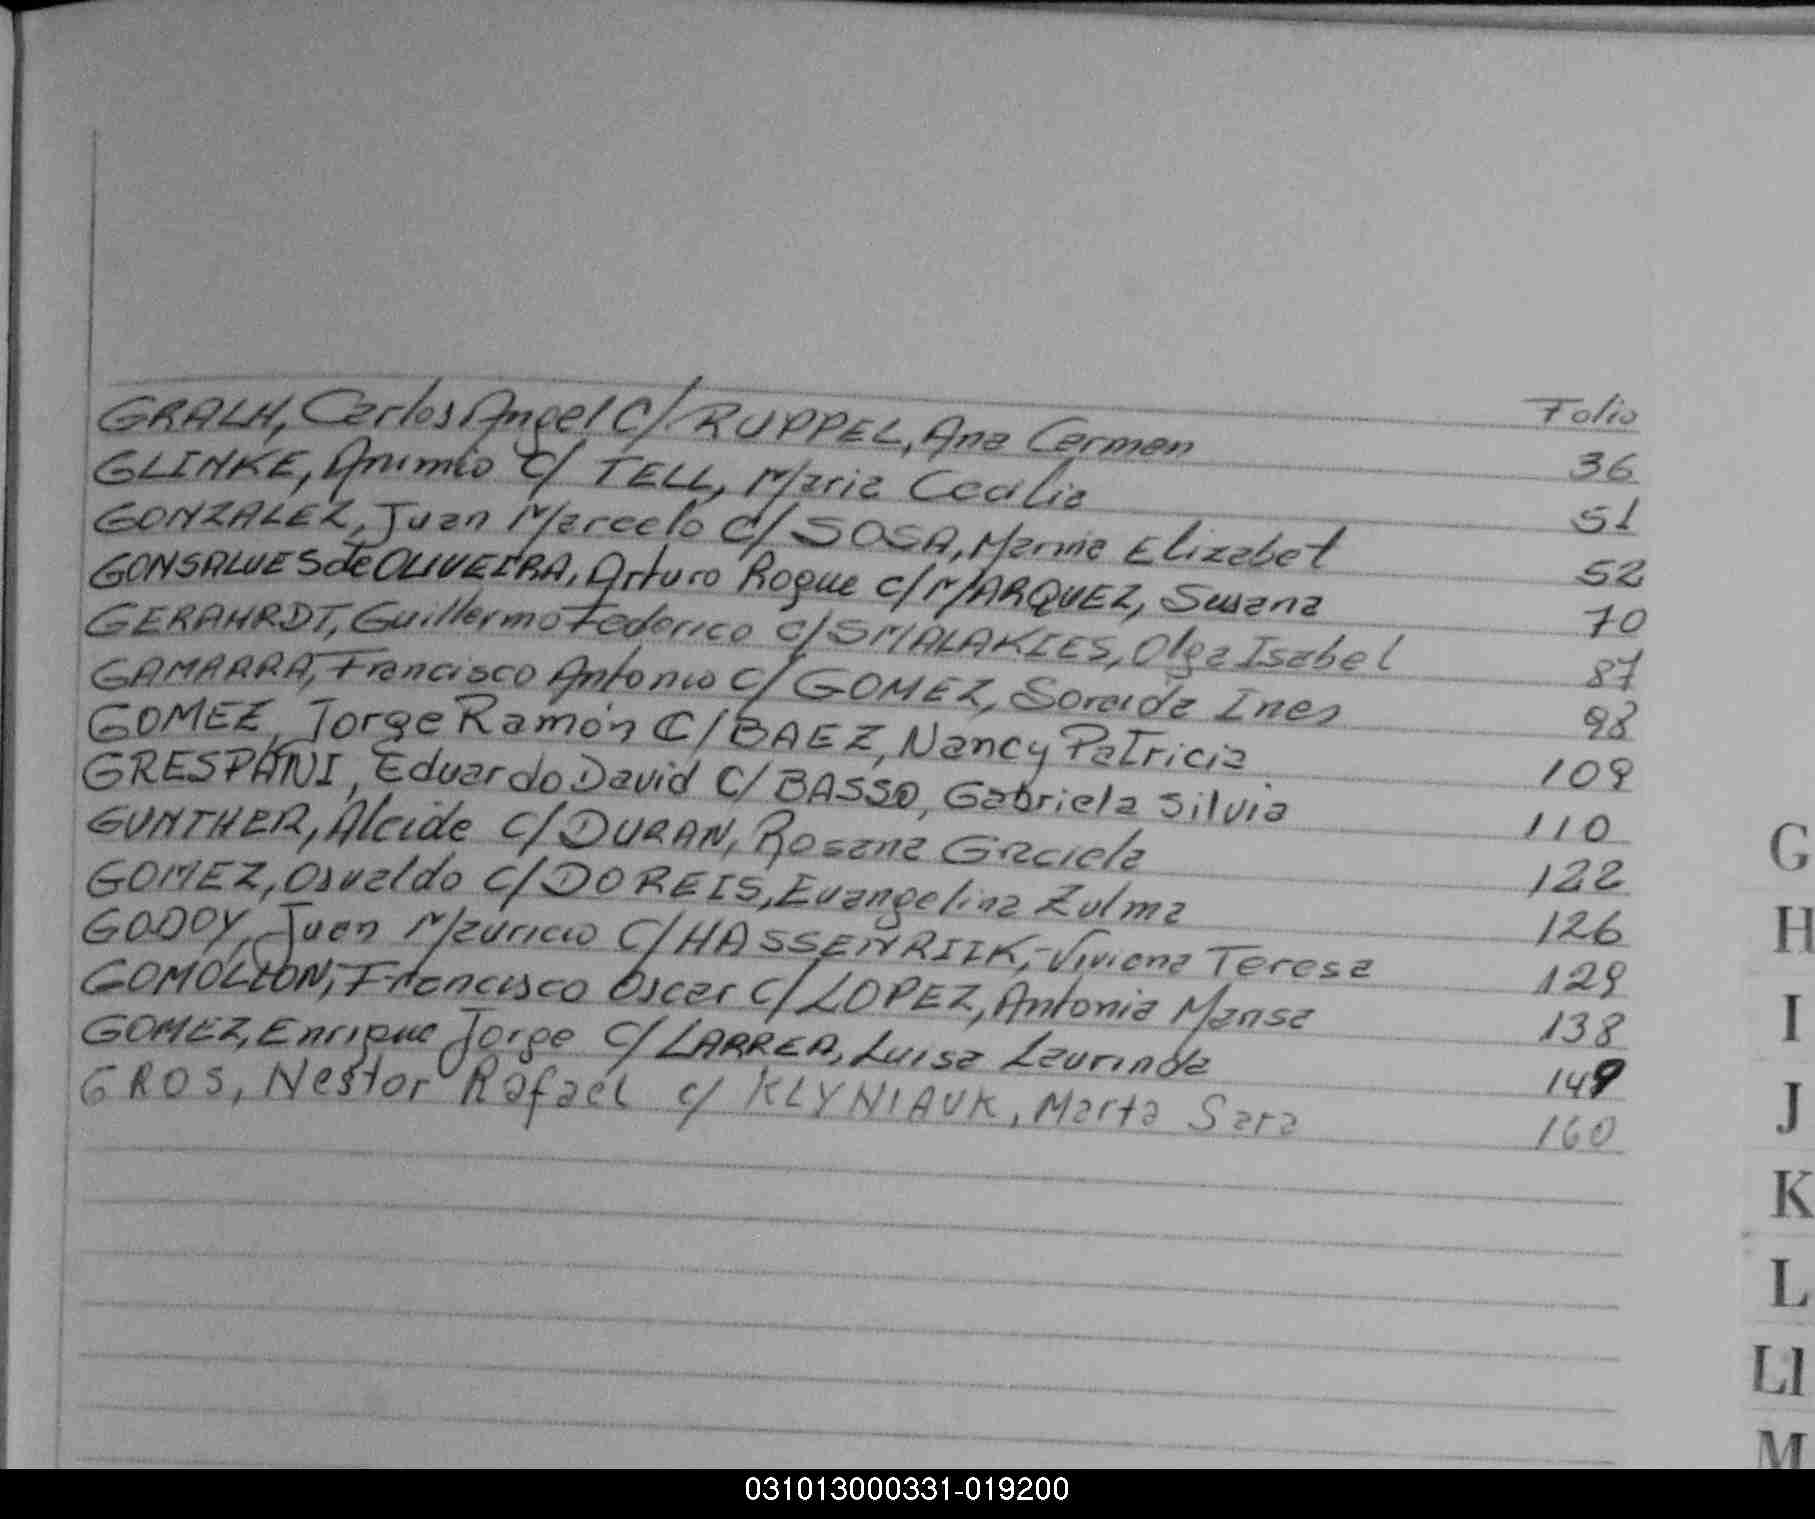 Folio
GRALH, Carlos Angel C/ RUPPEL, Ana Carmen 36
GLINKE, Animio C/ TELL, Maria Cecilia 51
GONZALEZ, Juan Marcelo C/ SOSA, Marina Elizabet 52
GONSALUES de OLIVEIRA, Arturo Roque C/ MARQUEZ, Susana 70
GERAHRDT, Guillermo Federico C/ SMALAKIES, Olga Isabel 87
GAMARRA, Francisco Antonio C/ GOMEZ, Soraida Ines 98
GOMEZ, Jorge Ramón C/ BAEZ, Nancy Patricia 109
GRESPANI, Eduardo David C/ BASSO, Gabriela Silvia 110
GUNTHER, Alcide C/ DURAN, Rosana Graciela 122
GOMEZ, Osvaldo C/ DOREIS, Evangelina Zulma 126
GODOY, Juan Mauricio C/ HASSENRIIK, Viviana Teresa 129
GOMOLION, Francisco Oscar C/ LOPEZ, Antonia Mansa 138
GOMEZ, Enrique Jorge C/ LARREA, Luisa Laurinda 149
GROS, Nestor Rafael c/ KLYNIAUK, Marta Sara 160
G
H
I
J
K
L
Ll
M
031013000331-019200